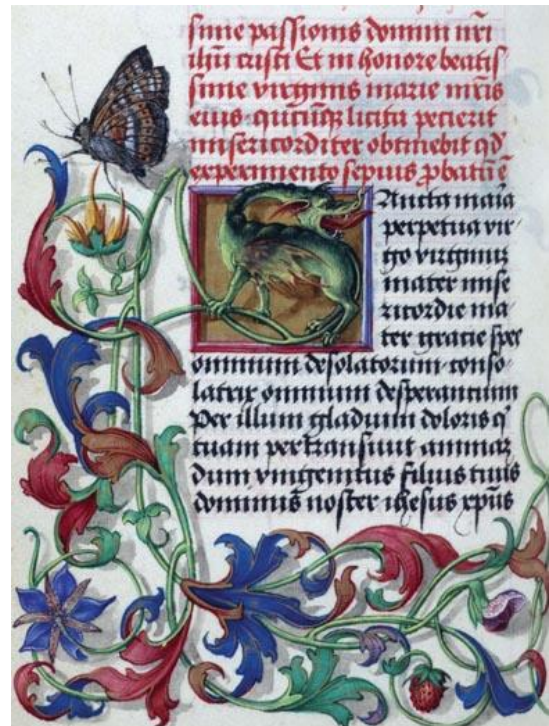 sime passionis domini nr̄i
ih̄u cristi Et in honore beatis-
sime virginis marie mr̄is
eius quicūq; licita pecierit
misericorditer obtinebit qd̄
experimento sepius ꝓbatū ē
Sancta maīa
perpetua vir-
go virginum
mater mise
ricordie ma-
ter gracie spes
omnium desolatorum conso-
latrix omnium desperantium
Per illum gladium doloris q̄
tuam pertransiuit animam
dum vnigenitus filius tuus
dominus noster ihesus xp̄us